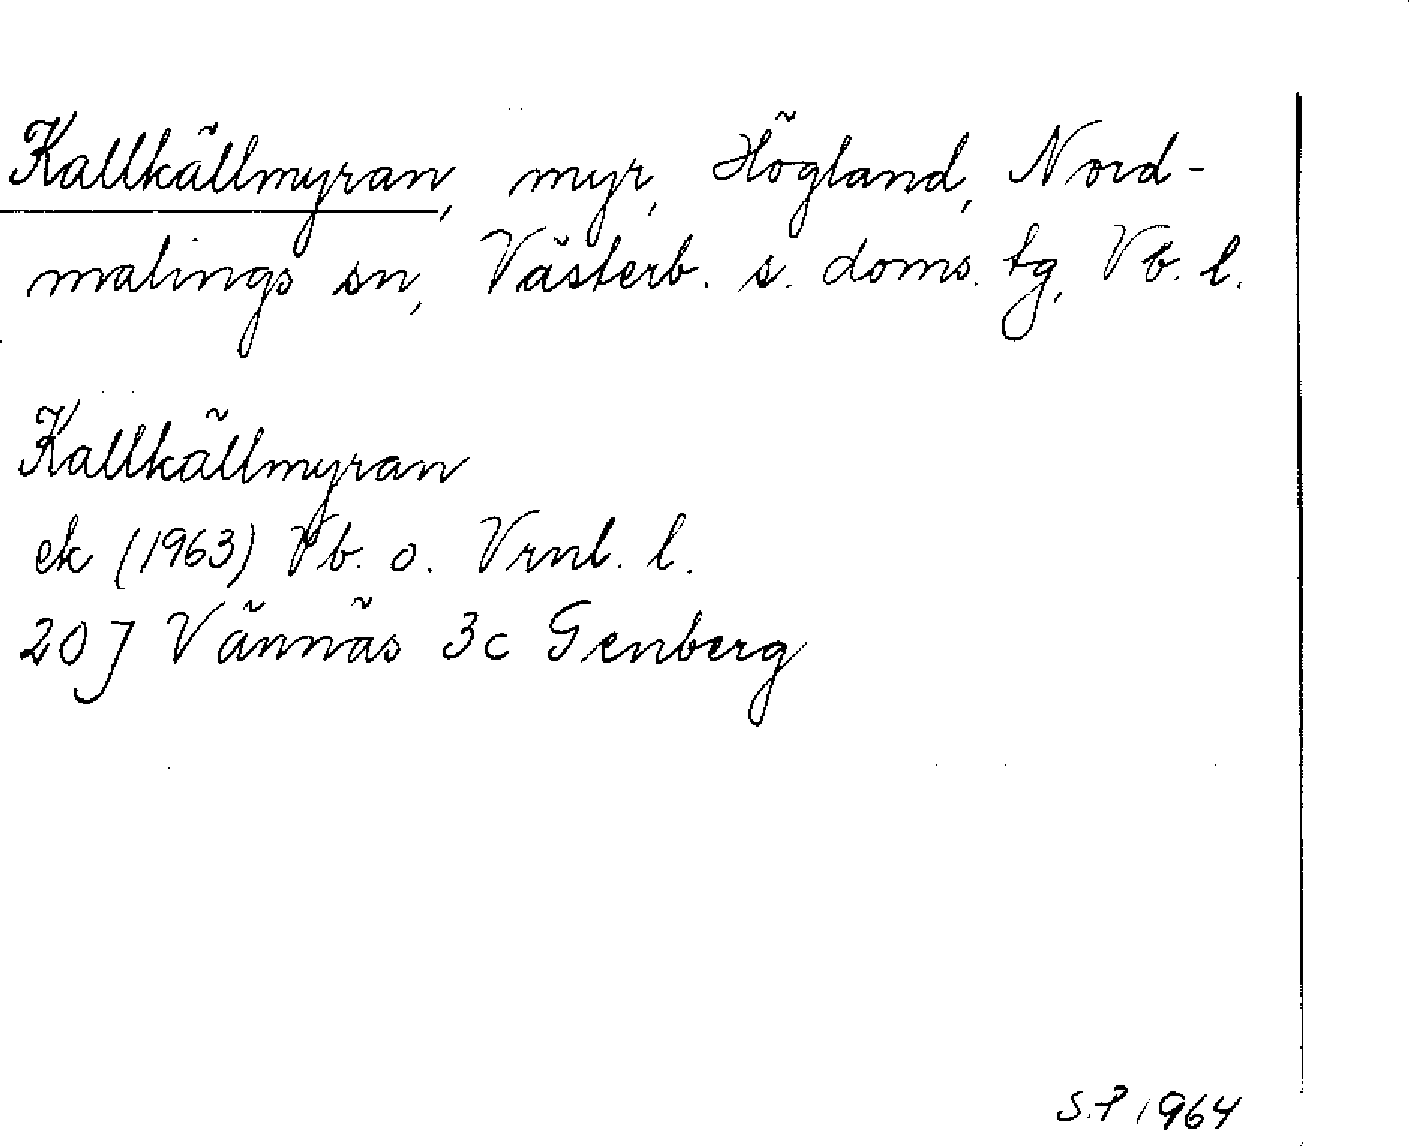 Kallkällmyran, myr, Högland, Nord-
malings sn, Västerb. s. doms. tg, Vb. l.
Kallkällmyran
ek (1963) Vb. o. Vrnl. l.
20 J Vännäs 3c Genberg
S.P 1964